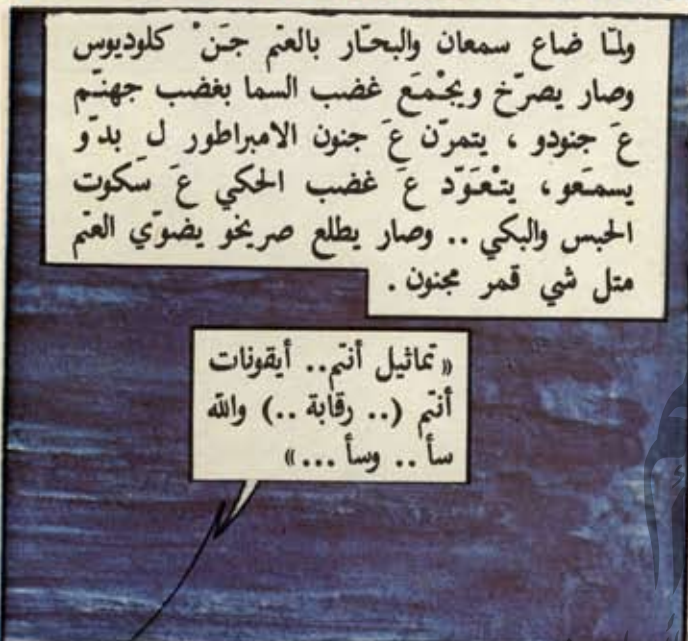 ولمّا ضاع سمعان والبحّار بالعتم جَنْ كلوديوس
وصار يصرّخ ويجْمَع غضب السما بغضب جهنّم
عَ جنودو ، يتمرّن عَ جنون الامبراطور ل بدّو
يسمَعو، يتْعَوّد عَ غضب الحكي عَ سَكوت
الحبس والبكي .. وصار يطلع صريخو يضوّي العتم
متل شي قمر مجنون .
« تماثيل أنتم.. أيقونات
أنتم (.. رقابة ..) والله
سأ .. وسأ ... »